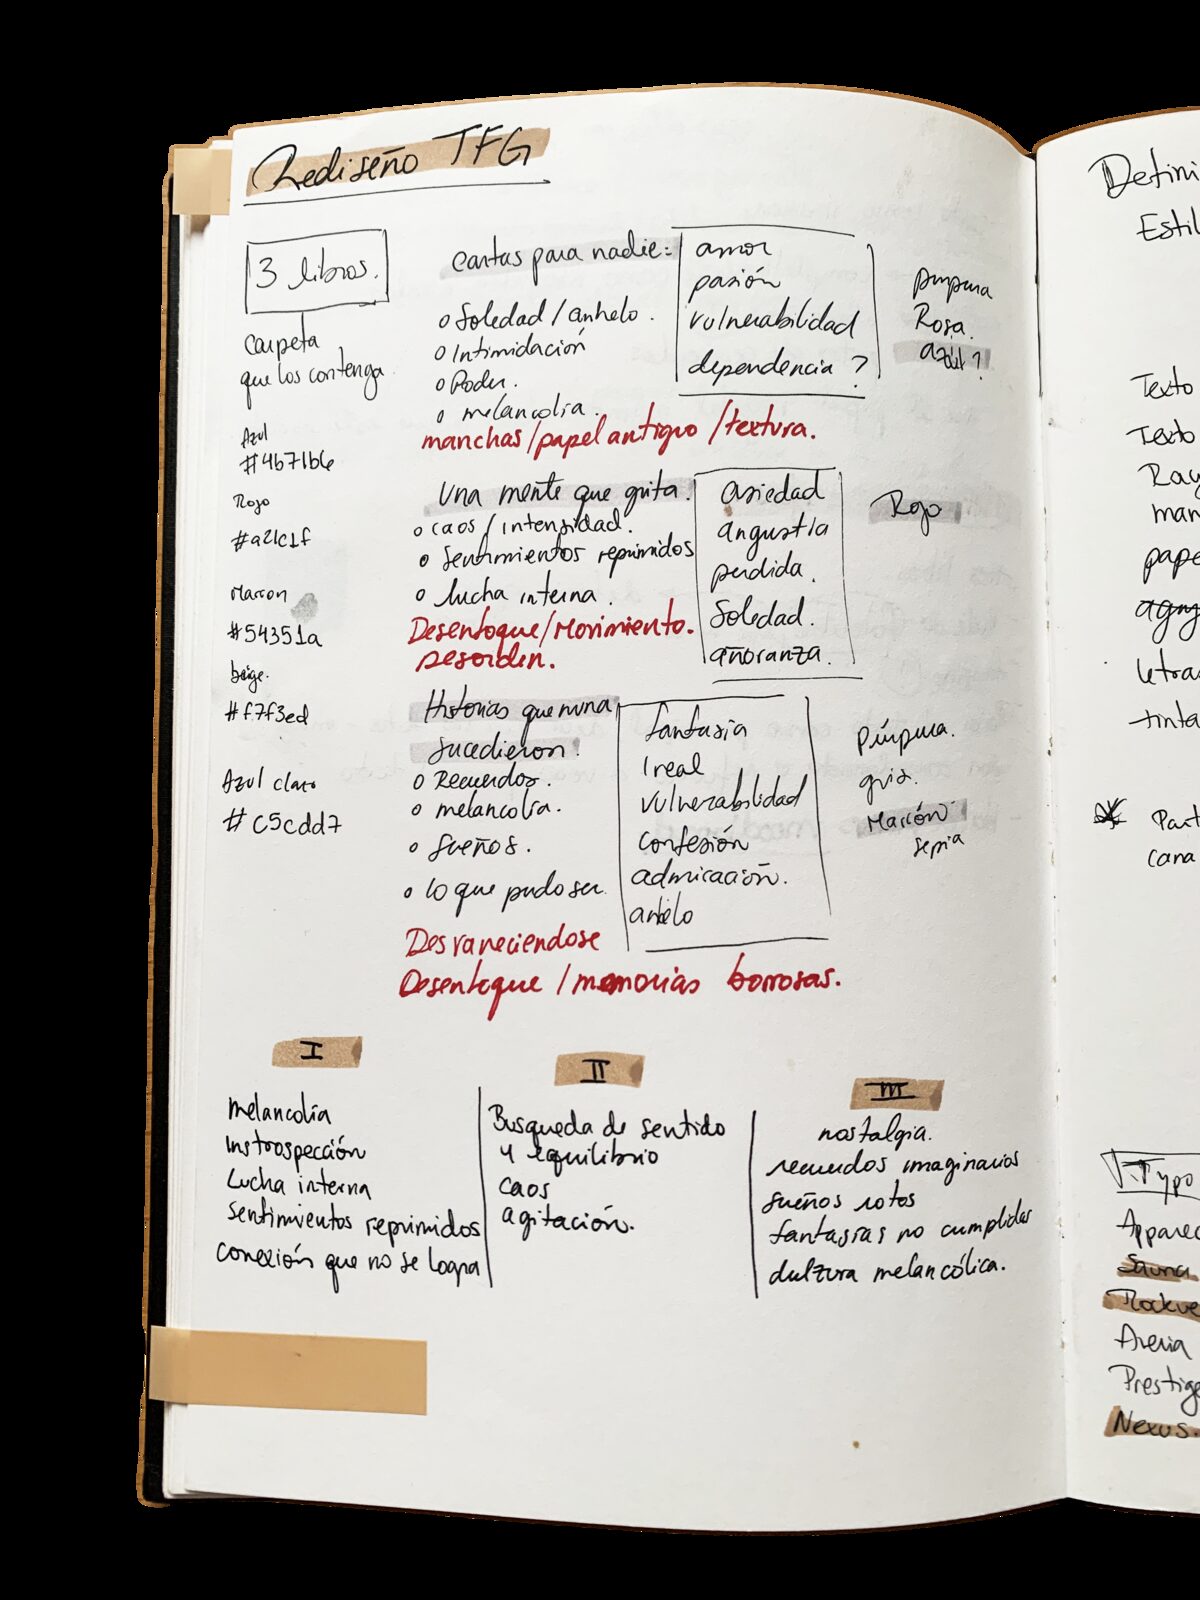 Rediseño TFG
3 libros.
Carpeta
que los contenga
Azul
#4b71b6
Rojo
#a21c1f
Marron
#54351a
beige.
#f7f3ed
Azul claro
#c5cdd7
cartas para nadie:
o Soledad/anhelo.
o Intimidación
o Poder.
o melancolia.
manchas/papel antiguo/textura.
amor
pasión
vulnerabilidad
dependencia?
purpura
Rosa.
azúl?
Una mente que grita.
o caos/intensidad.
o Sentimientos reprimidos
o lucha interna.
Desenfoque/Movimiento.
Desorden.
asiedad
angustia
perdida.
Soledad.
añoranza.
Rojo
Historias que nunca
Sucedieron.
o Recuerdos.
o melancolía.
o Sueños.
o lo que pudo ser.
Desvaneciendose
Desenfoque/memorias borrosas.
fantasia
Ireal
vulnerabilidad
Confesión
admiración.
anhelo
púrpura.
gris.
Marrón
sepia
I
melancolía
Instrospección
Lucha interna
Sentimientos reprimidos
conexión que no se logra
II
Busqueda de sentido
y equilibrio
caos
agitación.
III
nostalgia.
recuerdos imaginarios
sueños rotos
fantasias no cumplidas
dulzura melancólica.
Defini
Estil
Texto
Texto
Ray
man
pape
letras
tinta
Part
cana
Typo
Aparec
Rockve
Arena
Prestige
Nexus.